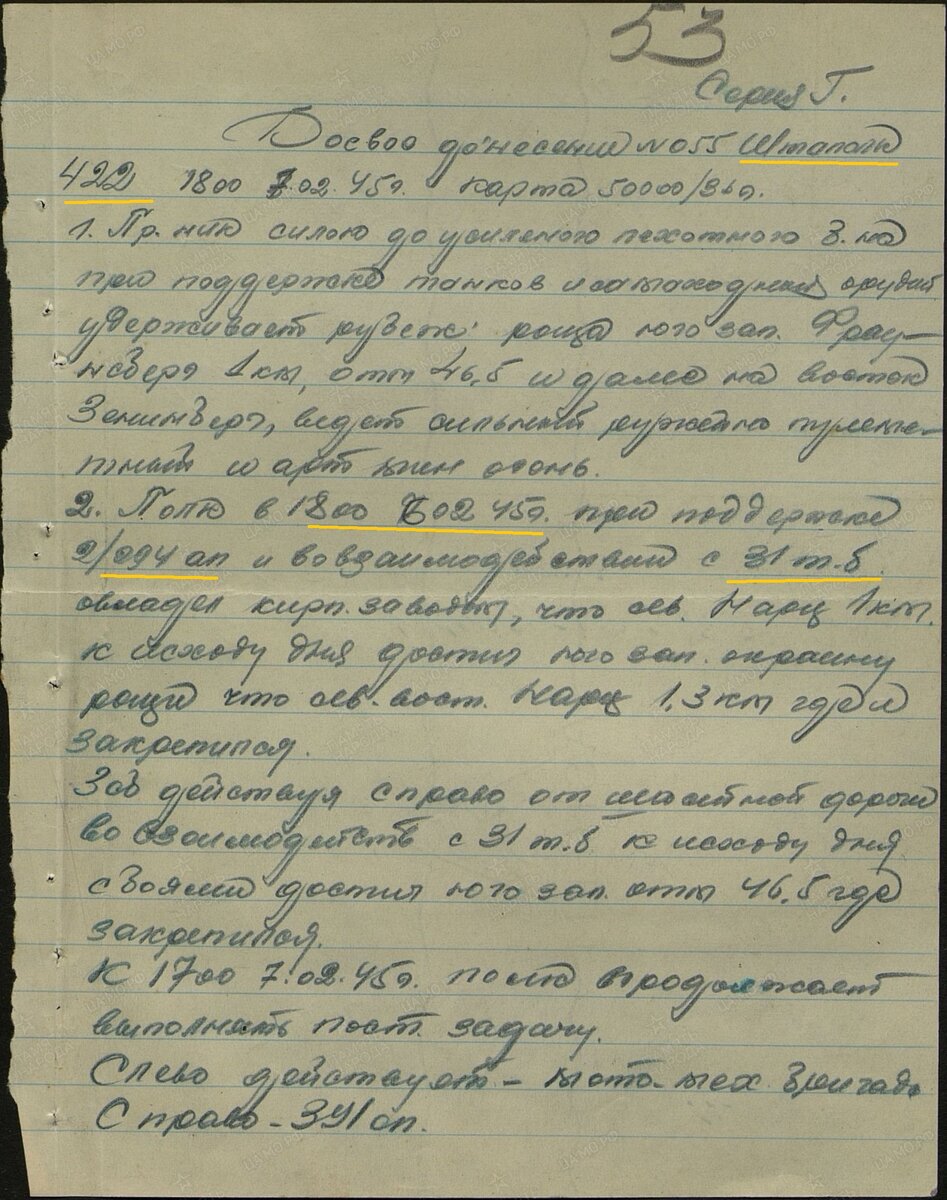 53
Серия Г.
Боевое донесение №055 Штаполк
422 1800 7.02.45г. Карта 50000/36г.
1. Пр-ник силою до усиленого пехотного б-на
при поддержке танков и самаходных орудий
удерживает рубеж: роща юго зап. Фрау-
нсберг 1 км, отм 46,5 и далее на восток
ведет сильный ружейно пулеме-
тный и арт мин огонь.
2. Полк в 1800 6.02 45г. при поддержке
2/094 ап и во взаимодействии с 31 т.б
овладел кирп. заводом, что сев. Нарц 1 км.
к исходу дня достиг юго зап. окраину
рощи что сев-вост. Нарц 1,3 км где и
закрепился.
3сб действуя справо от шасейной дороги
во взаимодейств с 31 т.б к исходу дня
с боями достиг юго зап. отм 46,5 где
закрепился.
К 1700 7.02.45г. полк продолжает
выполнять пост. задачу.
Слево действует - мото-мех бригада
Справо - 391 сп.